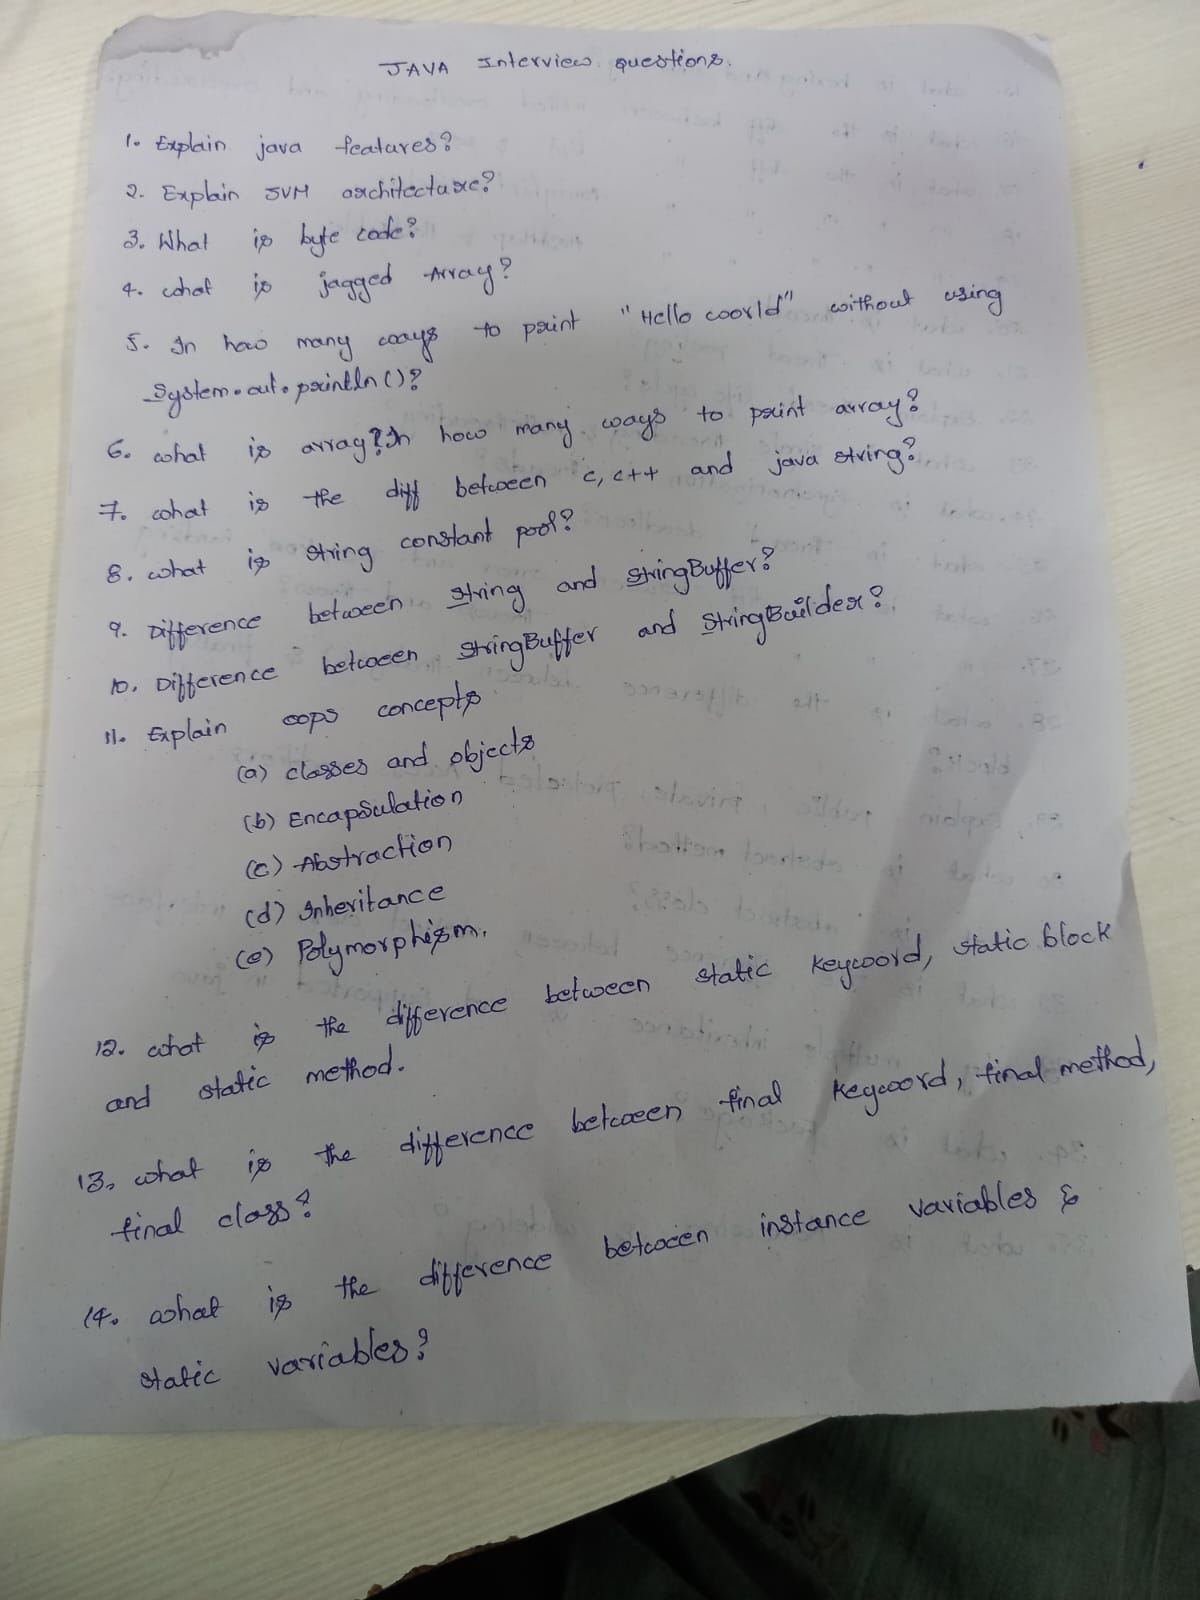 JAVA Interview questions.
1. Explain java features?
2. Explain JVM architecture?
3. What is byte code?
4. what is jagged Array?
5. In how many ways to print "Hello world" without using
System.out.println()?
6. what is array? In how many ways to print array?
7. what is the diff between c, c++ and java string?
8. what is string constant pool?
9. Difference between String and StringBuffer?
10. Difference between StringBuffer and StringBuilder?
11. Explain oops concepts
(a) classes and objects
(b) Encapsulation
(c) Abstraction
(d) Inheritance
(e) Polymorphism.
12. what is the difference between static keyword, static block
and static method.
13. what is the difference between final keyword, final method,
final class?
14. what is the difference between instance variables &
static variables?